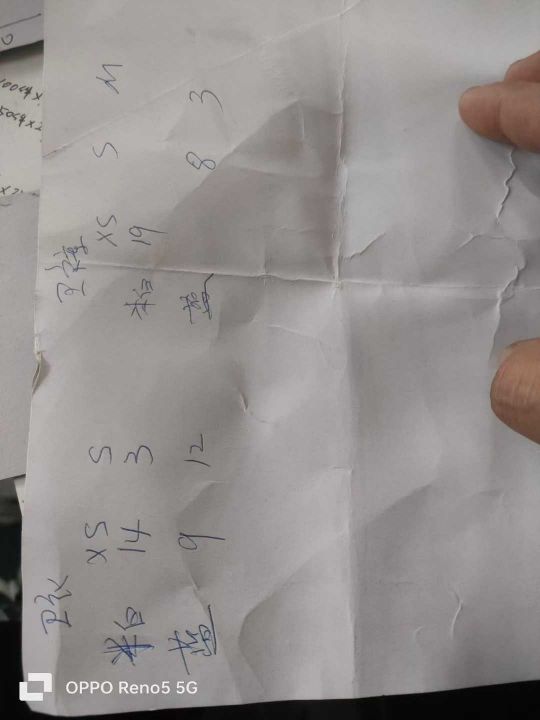 卫衣
XS S
米白 14 3
蓝 9 12
卫裤
XS S M
米白 19
蓝 8 3
OPPO Reno5 5G